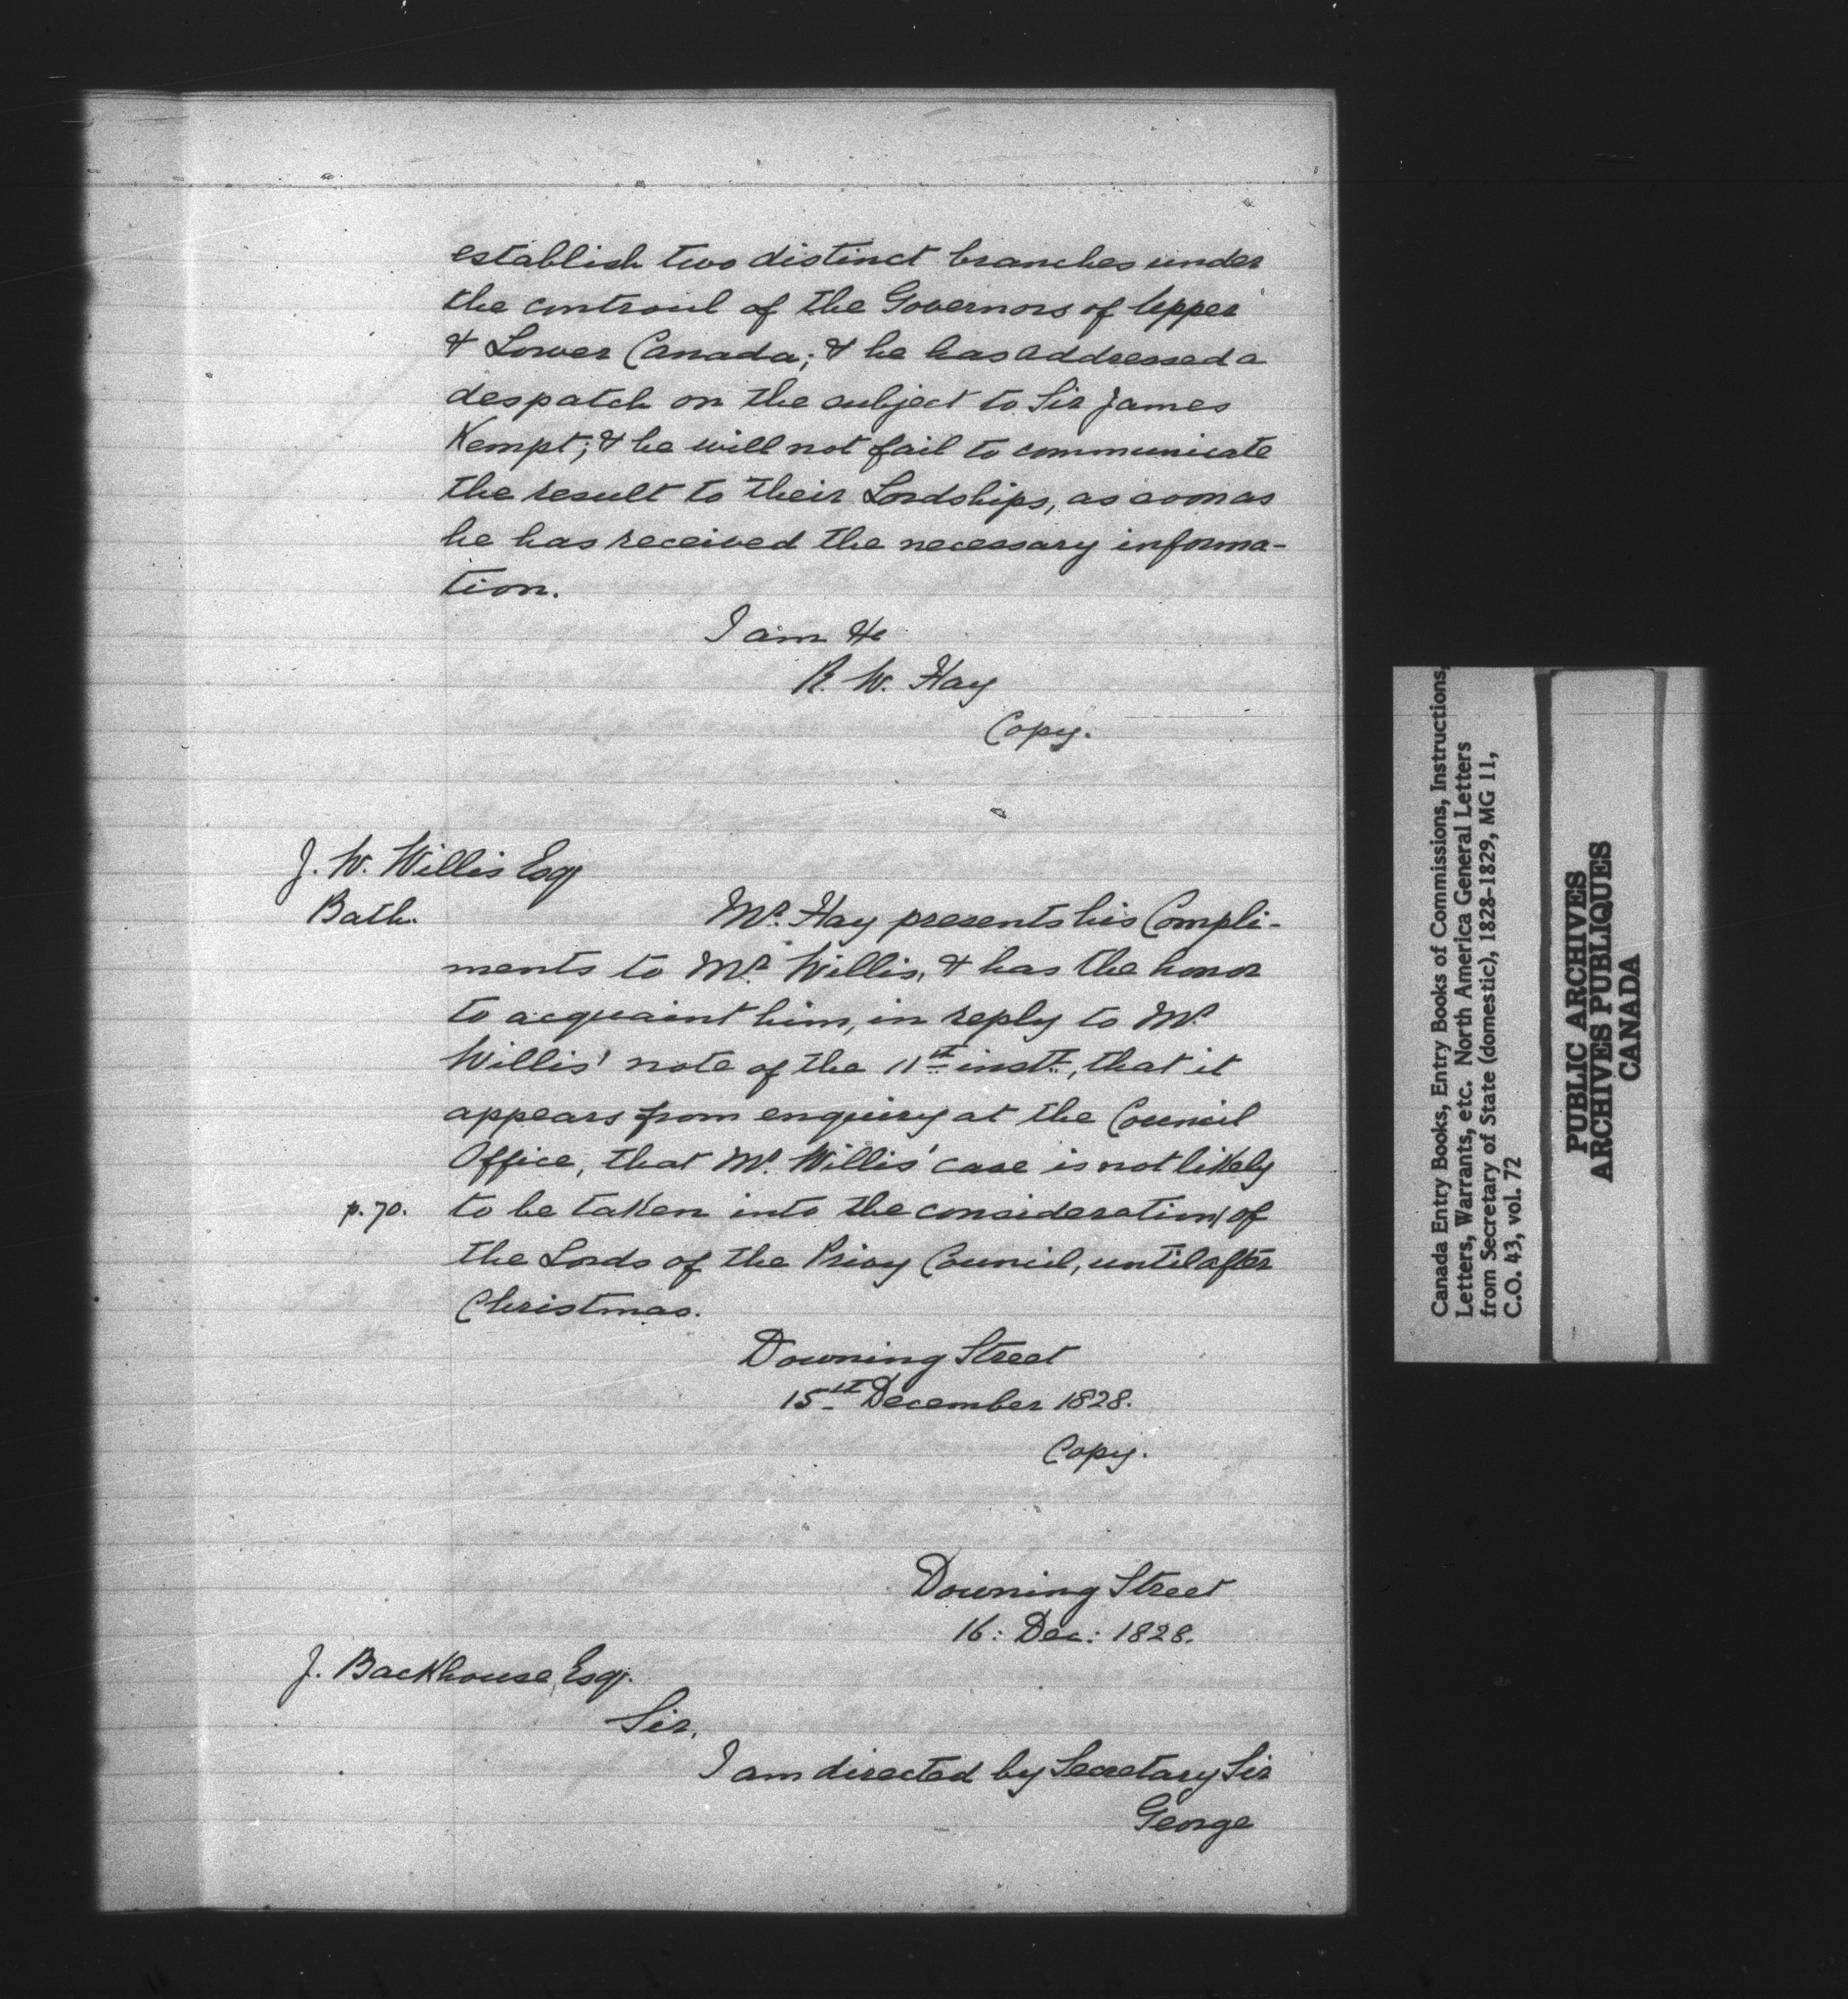 establish two distinct branches under
the controul of the Governors of Upper
& Lower Canada; & he has addressed a
despatch on the subject to Sir James
Kempt; & he will not fail to communicate
the result to their Lordships, as soon as
he has received the necessary informa-
tion.
I am &c
R. W. Hay
Copy.
J. W. Willis Esq
Bath.
Mr. Hay presents his Compli-
ments to Mr. Willis, & has the honor
to acquaint him, in reply to Mr.
Willis' note of the 11th instt, that it
appears from enquiry at the Council
Office, that Mr. Willis' case is not likely
p. 70. to be taken into the consideration/of
the Lords of the Privy Council, until after
Christmas.
Downing Street
15th December 1828.
Copy.
Downing Street
16: Dec: 1828.
J. Backhouse, Esq.
Sir,
I am directed by Secretary Sir
George
Canada Entry Books, Entry Books of Commissions, Instructions
Letters, Warrants, etc. North America General Letters
from Secretary of State (domestic), 1828-1829, MG 11,
C.O. 43, vol. 72
PUBLIC ARCHIVES
ARCHIVES PUBLIQUES
CANADA